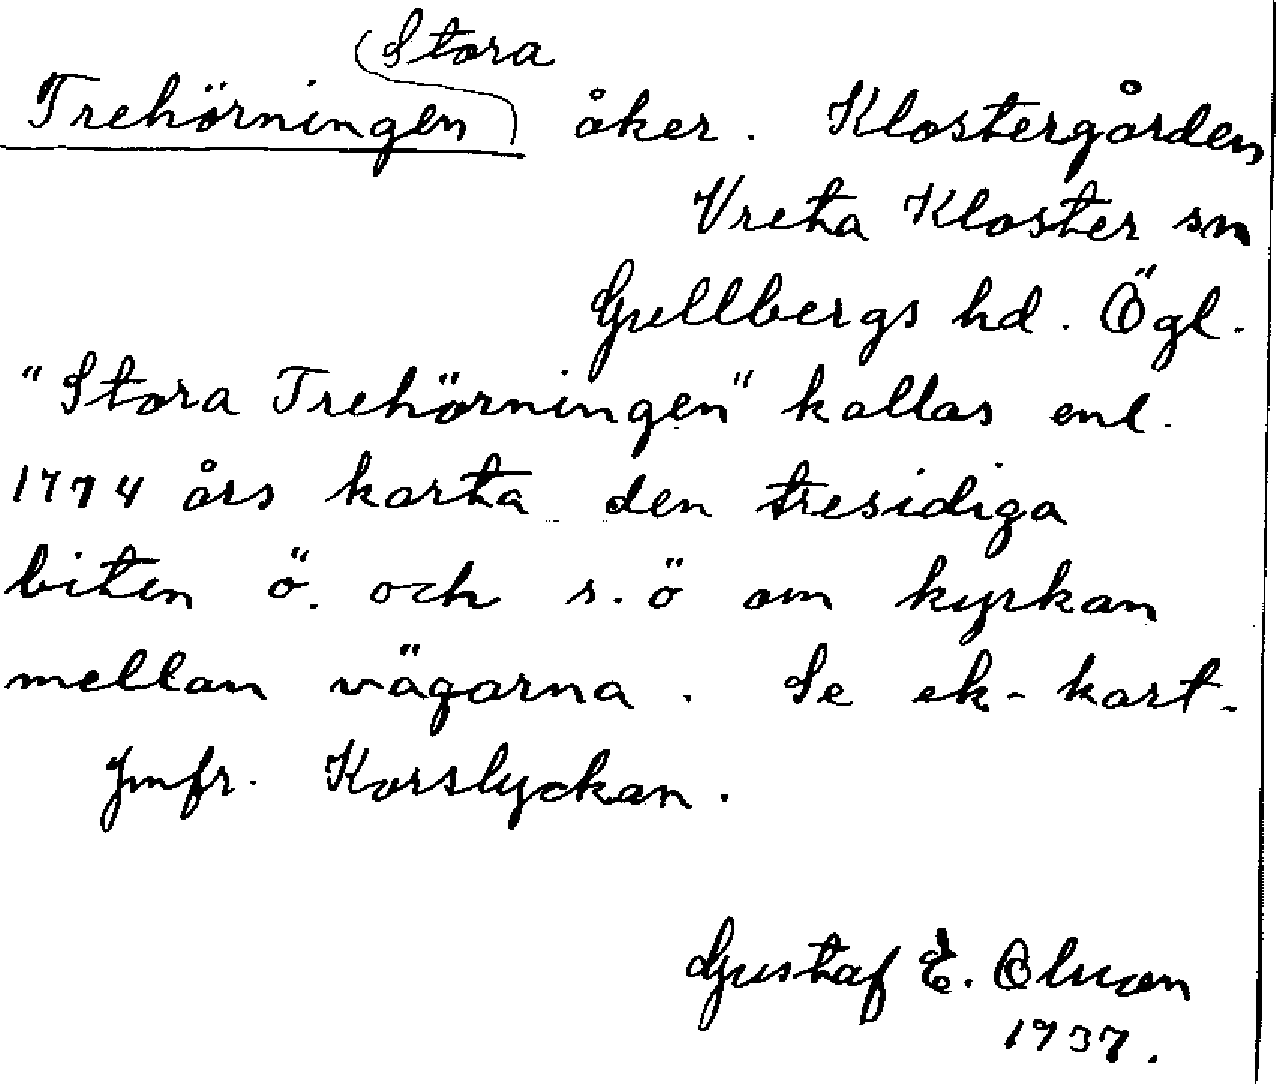 Stora
Trehörningen åker. Klostergården
Vreta Kloster sn
Gullbergs hd. Ögl.
"Stora Trehörningen" kallas enl.
1774 års karta den tresidiga
biten ö. och s.ö om kyrkan
mellan vägarna. Se ek-kart-
Jmfr. Korslyckan.
Gustaf E. Olsson
1937.